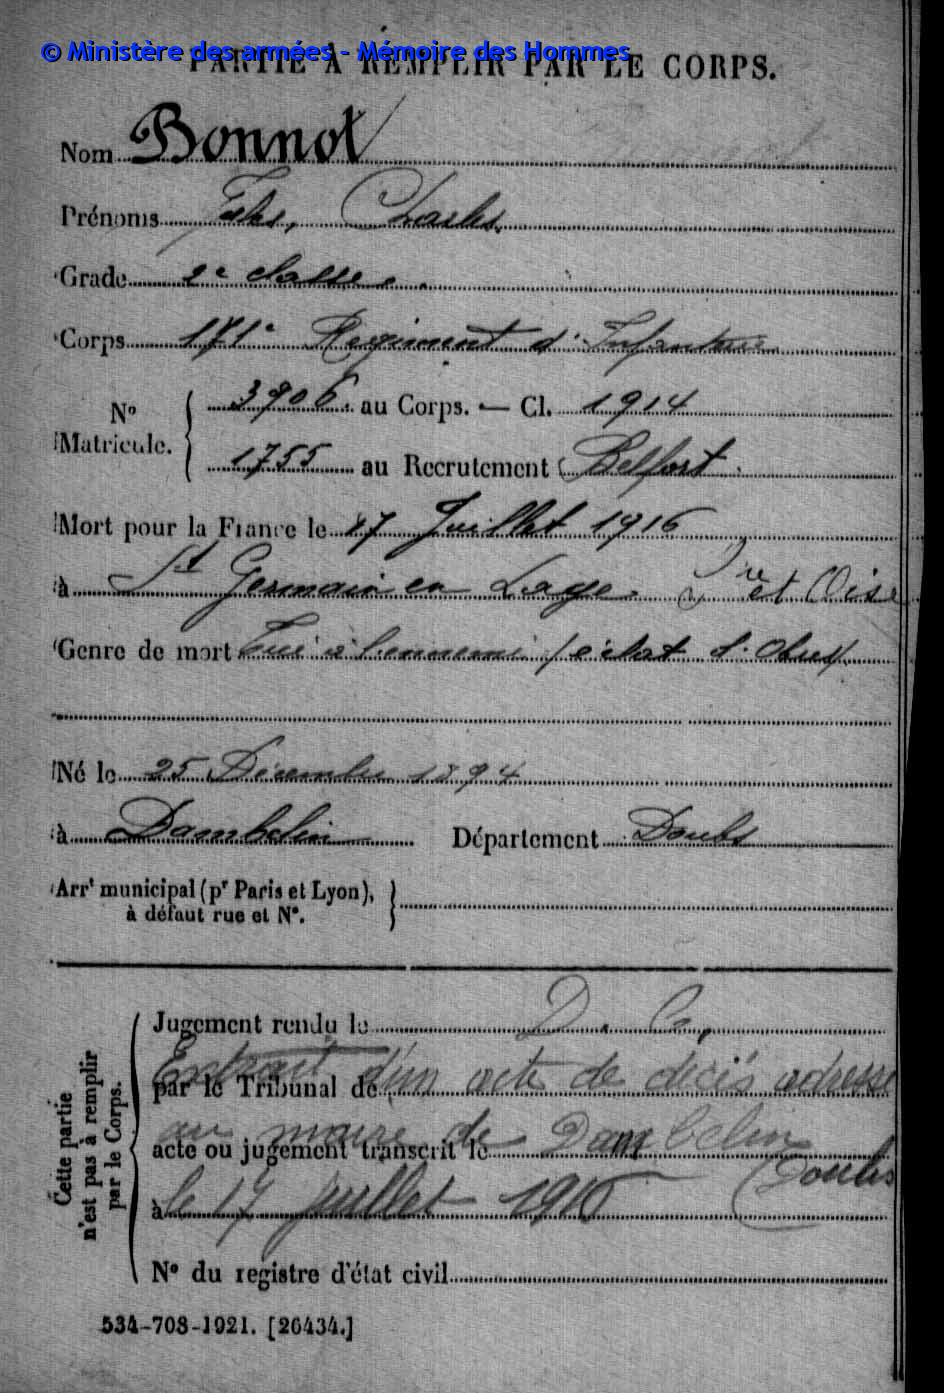 © Ministère des armées - Mémoire des Hommes
PARTIE À REMPLIR PAR LE CORPS.
Nom Bonnot
Prénoms Jules, Charles.
Grade 2e classe.
Corps 171e Régiment d'Infanterie
No Matricule. 3906. au Corps. — Cl. 1914
1755 au Recrutement Belfort.
Mort pour la France le 17 Juillet 1916
à St Germain en Laye. et Oise
Genre de mort Tué à l'ennemi éclat d'Obus
Né le 25 Décembre 1894
à Dambelin Département Doubs
Arrt municipal (pr Paris et Lyon),
à défaut rue et No.
Cette partie
n'est pas à remplir
par le Corps.
Jugement rendu le D. C,
Extrait d'un acte de décès adressé
par le Tribunal de
au maire de Dambelin
acte ou jugement transcrit le
(Doubs
à le 17 juillet 1916
No du registre d'état civil
534-708-1921. [26434.]